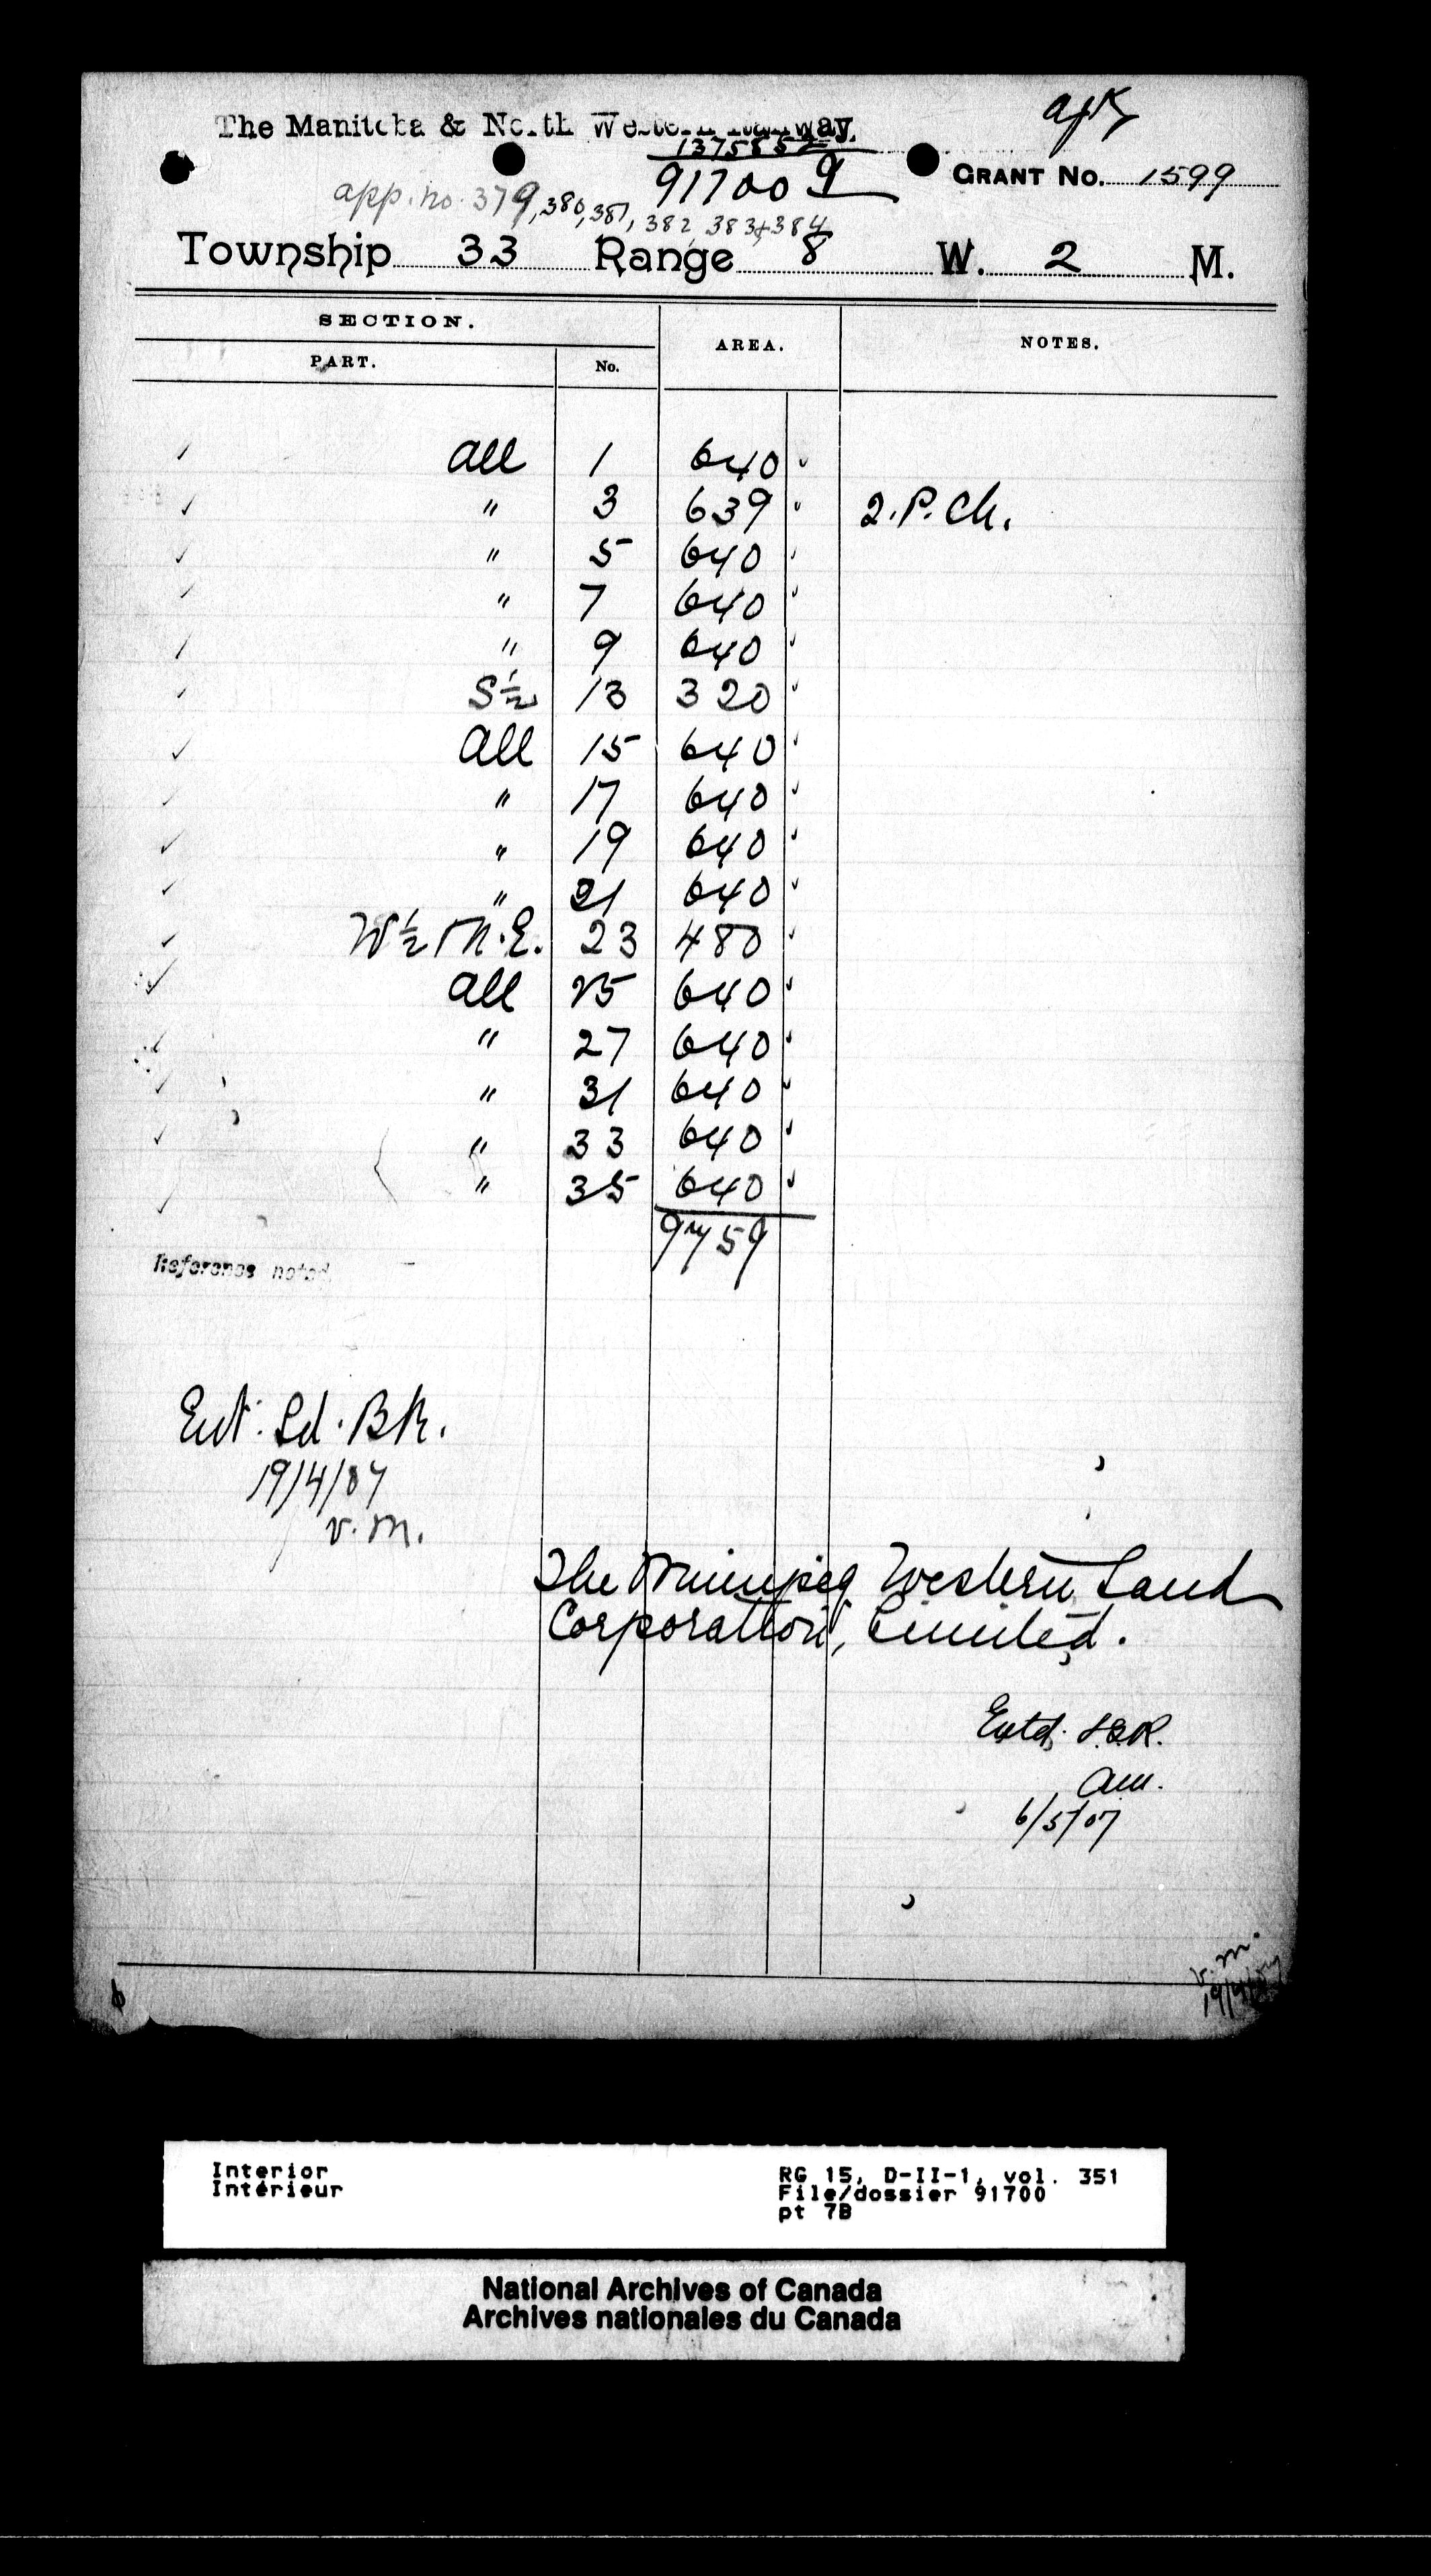 The Manitoba & North Western Railway.
1375852
91700 9
GRANT No. 1599
app. no. 379, 380, 381, 382, 383 & 384
Township 33 Range 8 W. 2 M.
SECTION. AREA. NOTES.
PART. No.
All 1 640
" 3 639 2.P.Ch.
" 5 640
" 7 640
" 9 640
S½ 13 320
All 15 640
" 17 640
" 19 640
" 21 640
W½ & N.E. 23 480
All 25 640
" 27 640
" 31 640
" 33 640
" 35 640
9759
Reference noted
Ent. Ld. BK.
19/4/07
v.m.
The Winnipeg Western Land
Corporation, Limited.
Entd. L.B.R.
6/5/07
v.m.
19/4/07
Interior
Intérieur
RG 15, D-II-1, vol. 351
File/dossier 91700
pt 7B
National Archives of Canada
Archives nationales du Canada